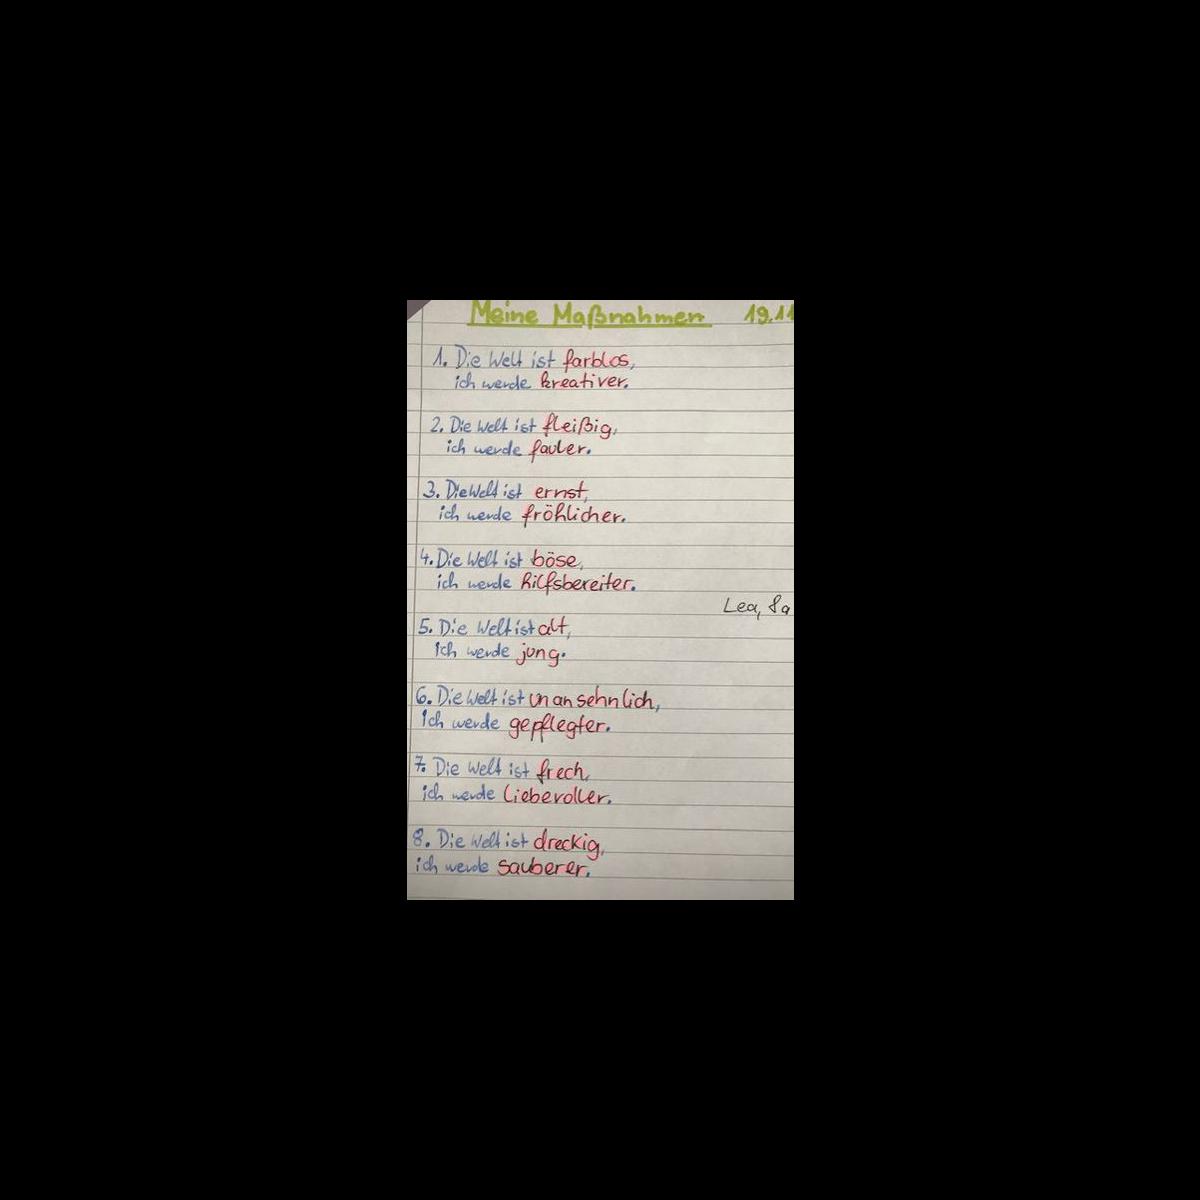 Meine Maßnahmen 19.11
1. Die Welt ist farblos,
ich werde kreativer.
2. Die Welt ist fleißig,
ich werde fauler.
3. Die Welt ist ernst,
ich werde fröhlicher.
4. Die Welt ist böse,
ich werde hilfsbereiter.
Lea, 8a
5. Die Welt ist alt,
ich werde jung.
6. Die Welt ist unansehnlich,
ich werde gepflegter.
7. Die Welt ist frech,
ich werde liebevoller.
8. Die Welt ist dreckig,
ich werde sauberer.